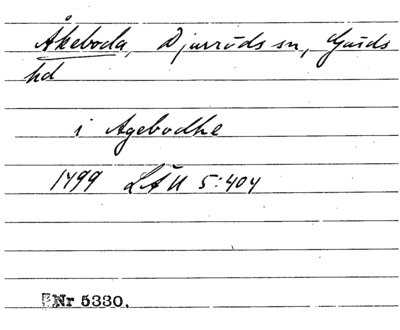 Åkeboda, Djurröds sn, Gärds
hd
i Agebodhe
1499 LÄU 5:404
Nr 5330.